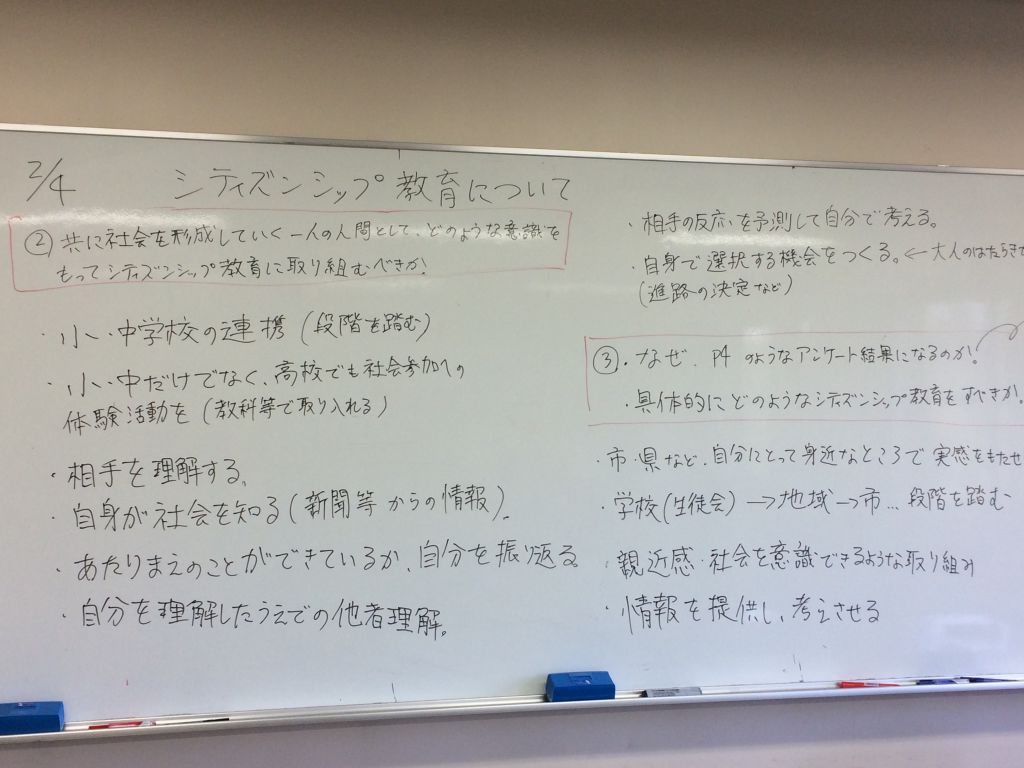 2/4 シティズンシップ教育について
② 共に社会を形成していく一人の人間として、どのような意識を
もってシティズンシップ教育に取り組むべきか!
・小、中学校の連携(段階を踏む)
・小、中だけでなく、高校でも社会参加への
体験活動を(教科等で取り入れる)
・相手を理解する。
・自身が社会を知る(新聞等からの情報)。
・あたりまえのことができているか、自分を振り返る
・自分を理解したうえでの他者理解。
・相手の反応を予測して自分で考える。
・自身で選択する機会をつくる。←大人のはたらきで
(進路の決定など)
③・なぜ、P4のようなアンケート結果になるのか!
・具体的にどのようなシティズンシップ教育をすべきか。
・市・県など、自分にとって身近なところで実感をもたせ
・学校(生徒会)→地域→市…段階を踏む
・親近感・社会を意識できるような取り組み
・情報を提供し、考えさせる